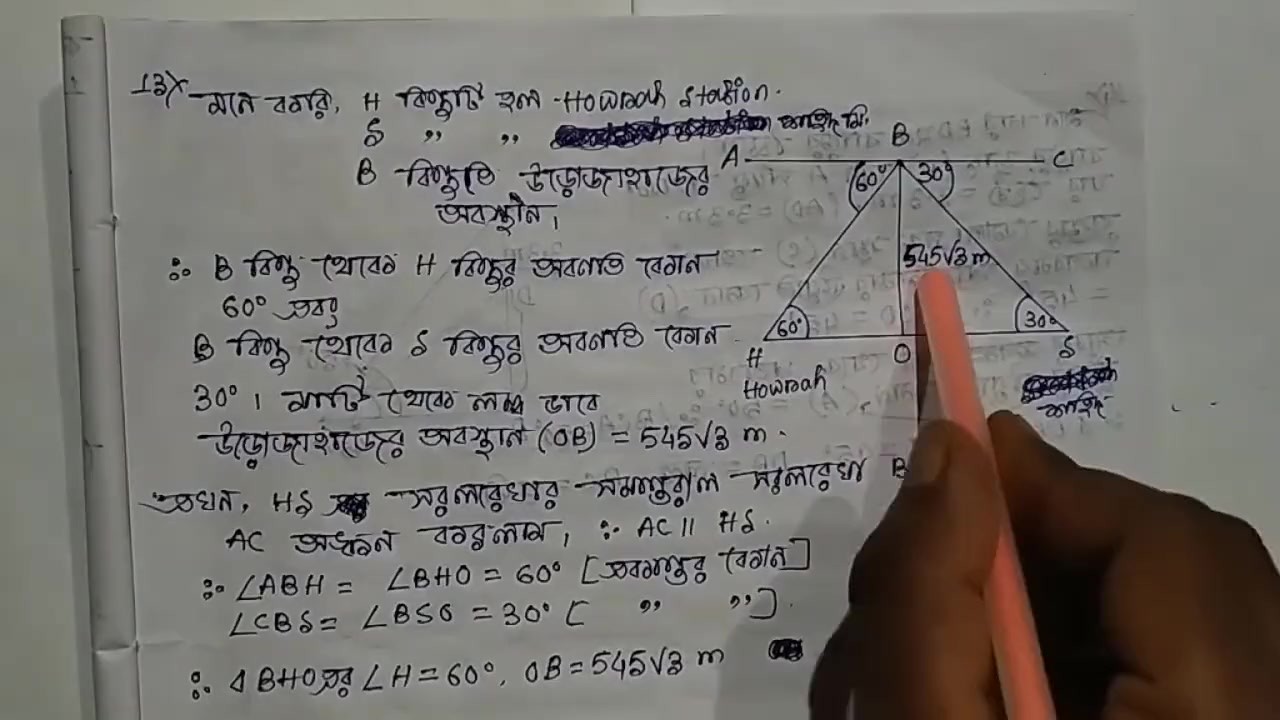 13) মনে করি, H বিন্দুটি হল Howrah Station.
S " " শহিদ মি.
B বিন্দুতি উড়োজাহাজের
অবস্থান,
∴ B বিন্দু থেকে H বিন্দুর অবনতি কোন
60° এবং
B বিন্দু থেকে S বিন্দুর অবনতি কোন
30°। মাটি থেকে লম্ব ভাবে
উড়োজাহাজের অবস্থান (OB) = 545√3 m.
এখন, HS সরলরেখার সমান্তরাল সরলরেখা B
AC অঙ্কন করলাম, ∴ AC || HS.
∴ ∠ABH = ∠BHO = 60° [একান্তর কোন]
∠CBS = ∠BSO = 30° [ " " ].
∴ ΔBHO এর ∠H = 60°, OB = 545√3 m
A B C
60° 30°
545√3 m
60° 30°
H O S
Howrah শহিদ